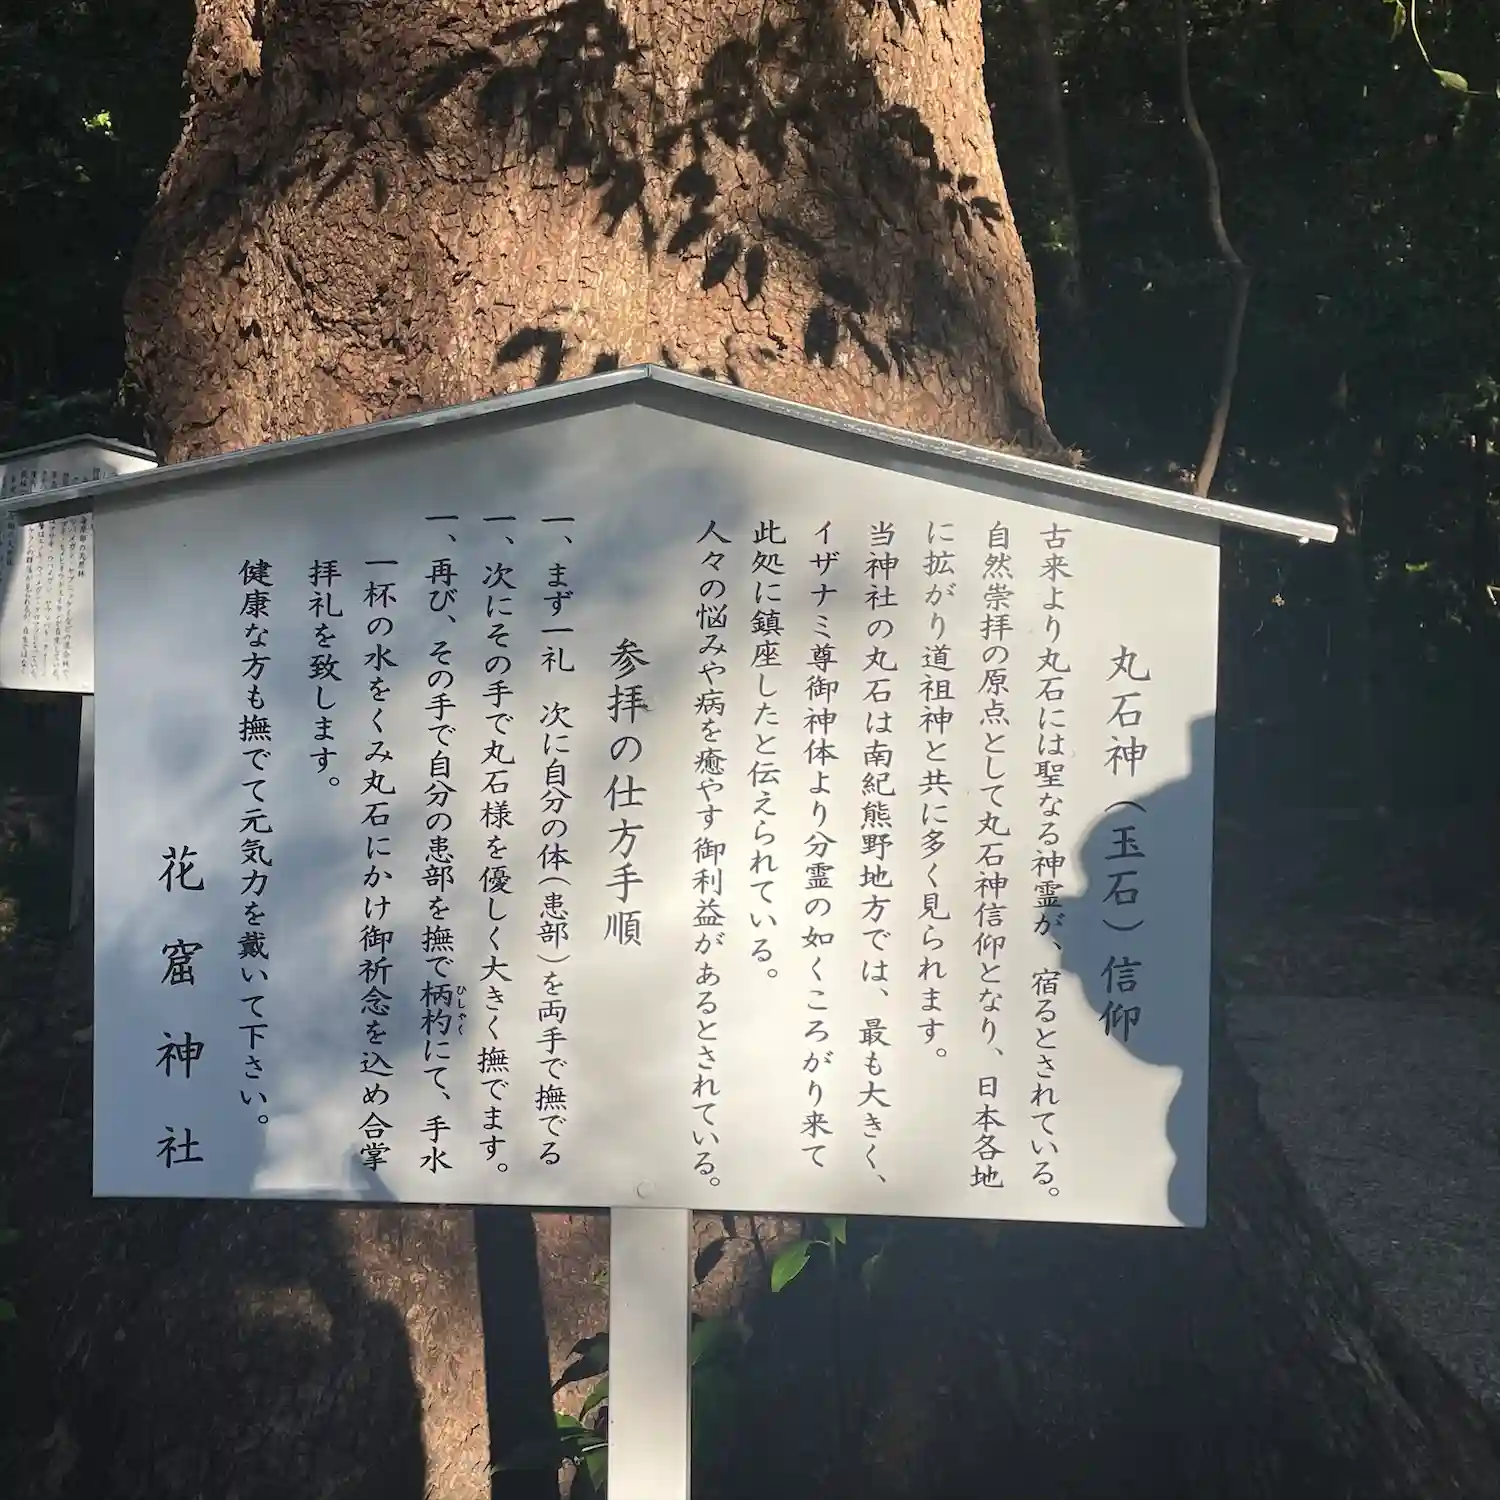 丸石神（玉石）信仰
古来より丸石には聖なる神霊が、宿るとされている。
自然崇拝の原点として丸石神信仰となり、日本各地
に拡がり道祖神と共に多く見られます。
当神社の丸石は南紀熊野地方では、最も大きく、
イザナミ尊御神体より分霊の如くころがり来て
此処に鎮座したと伝えられている。
人々の悩みや病を癒やす御利益があるとされている。
参拝の仕方手順
一、まず一礼　次に自分の体（患部）を両手で撫でる
一、次にその手で丸石様を優しく大きく撫でます。
一、再び、その手で自分の患部を撫で柄杓にて、手水
ひしゃく
一杯の水をくみ丸石にかけ御祈念を込め合掌
拝礼を致します。
健康な方も撫でて元気力を戴いて下さい。
花窟神社